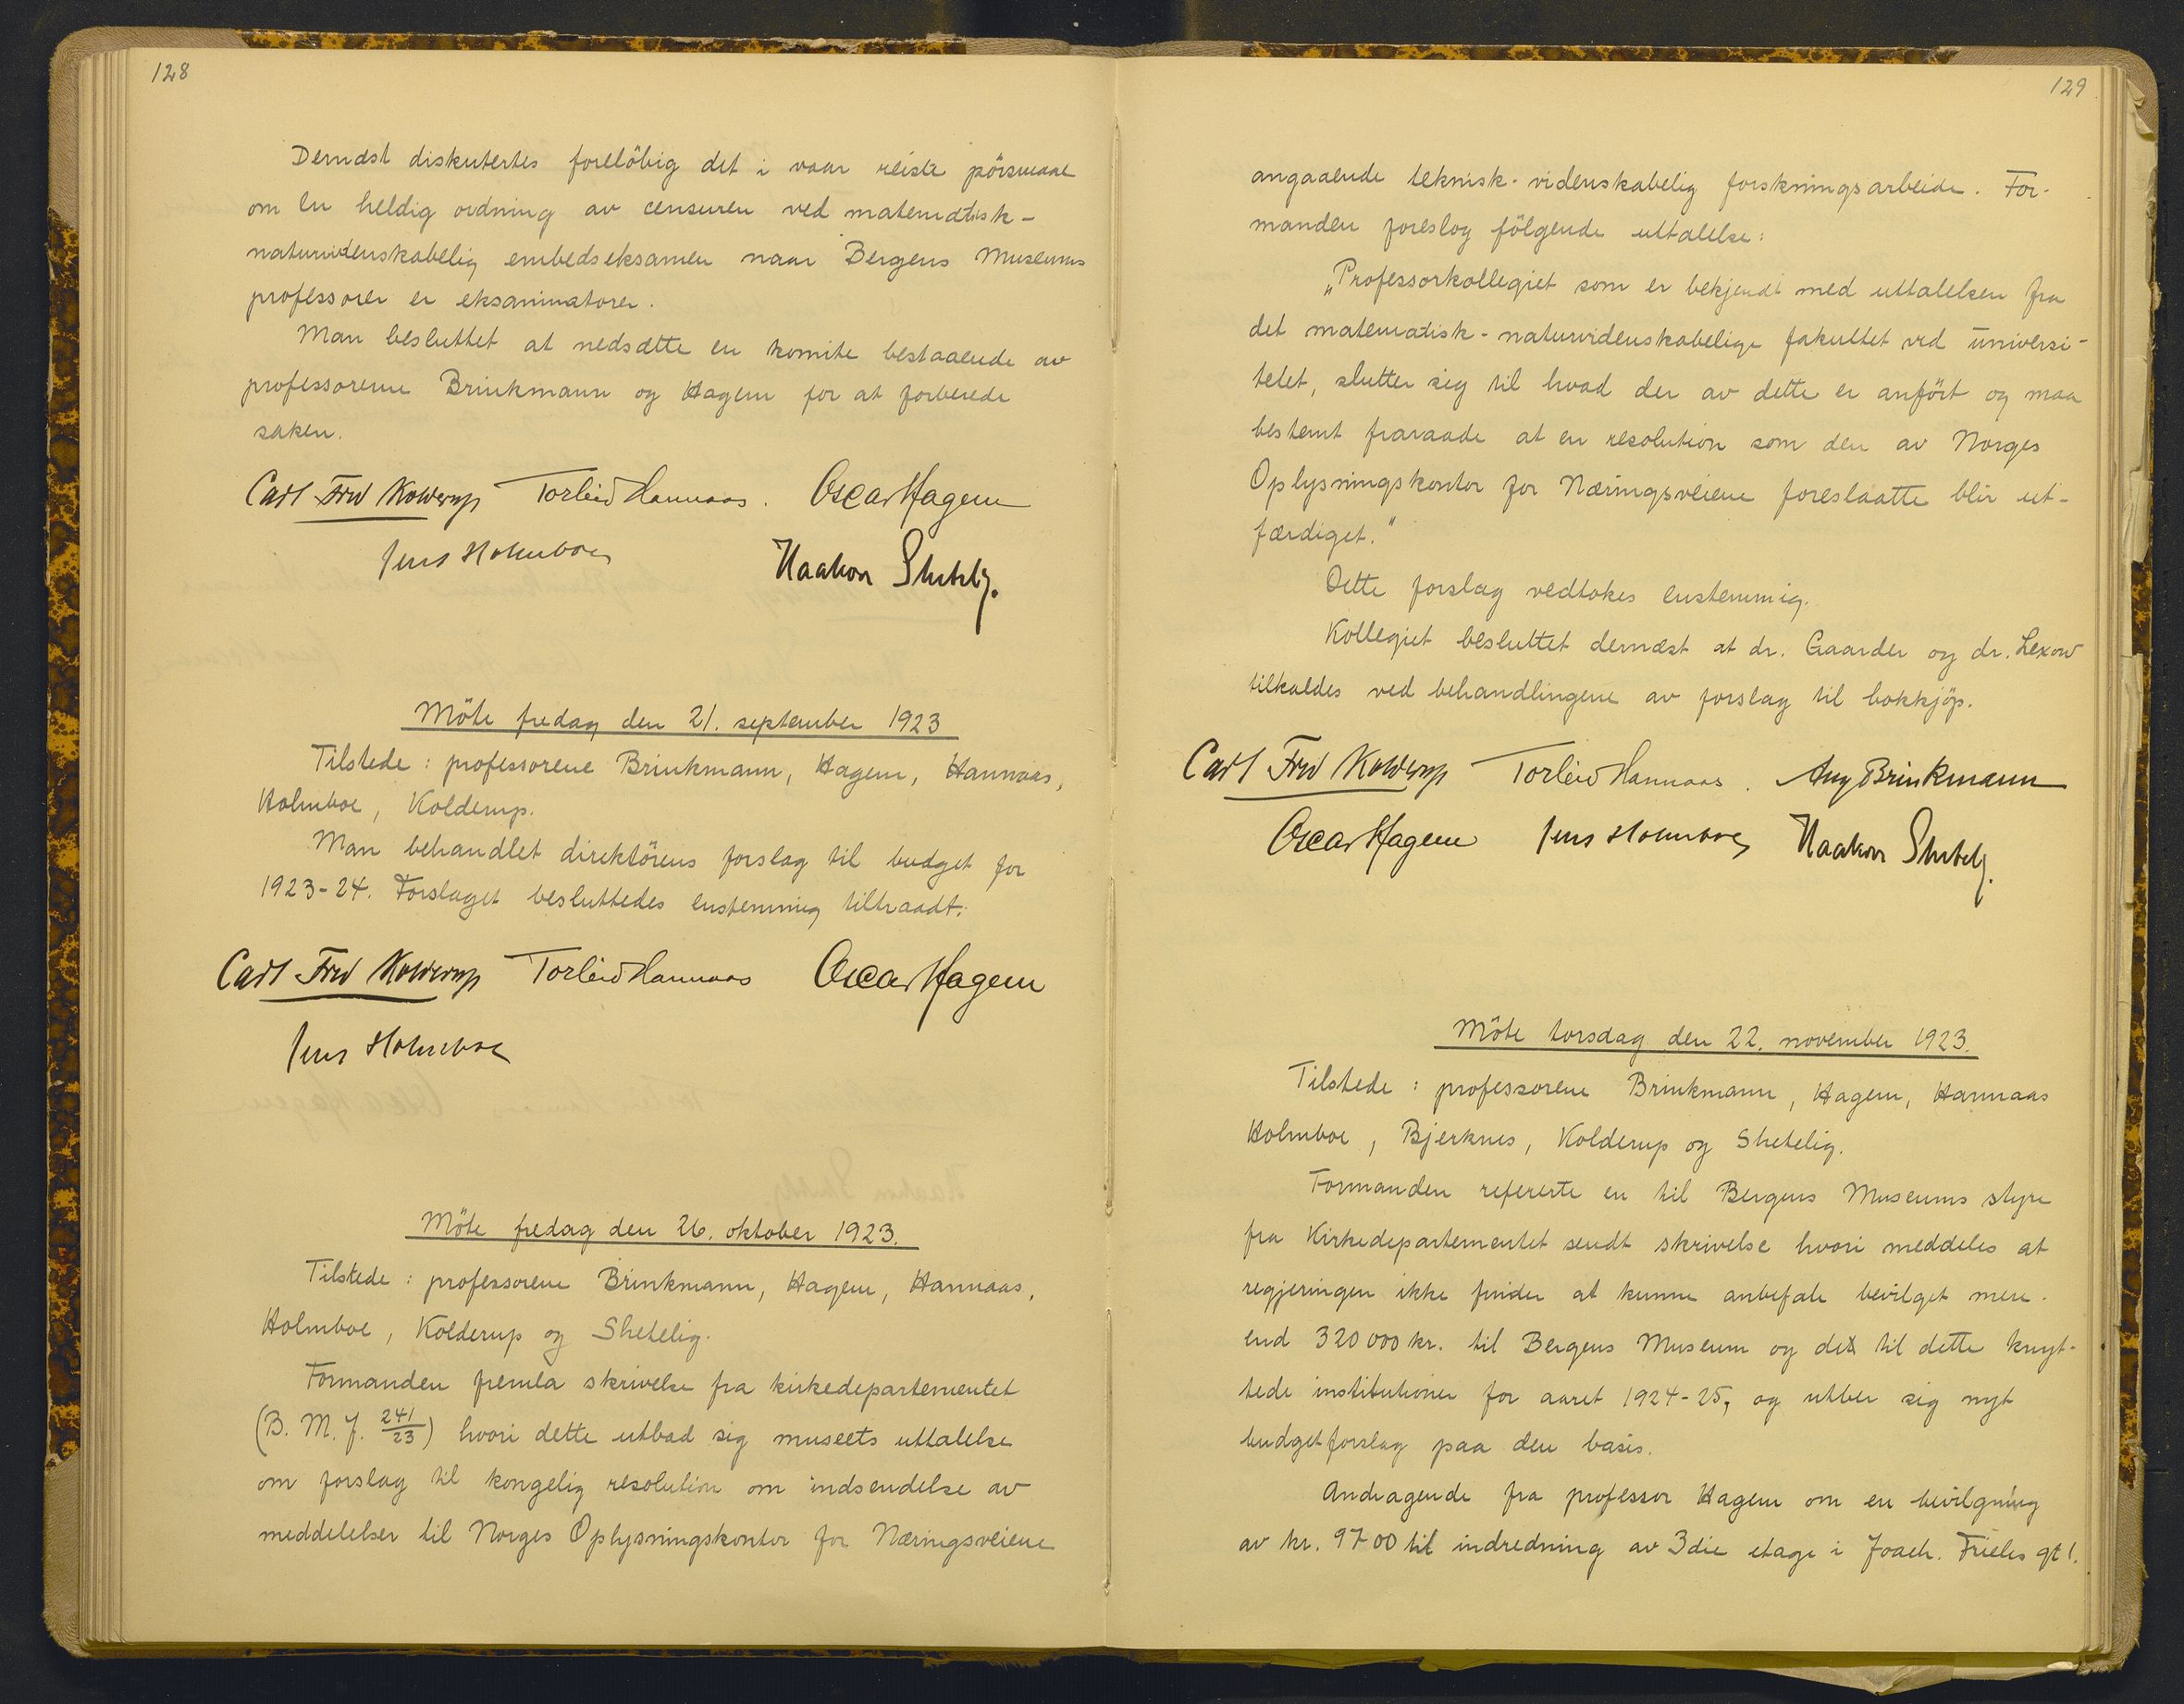 128
Dernæst diskutertes forelöbig det i vaar reiste pörsmaal
om en heldig ordning av censuren ved matematisk-
naturvidenskabelig embedseksamen naar Bergens Museums
professorer er eksaminatorer.
Man besluttet at nedsætte en komite bestaaende av
professorerne Brinkmann og Hagem for at forberede
saken.
Carl Fred Kolderup Torleiv Hannaas. Oscar Hagem
Jens Holmboe Haakon Shetelig.
Möte fredag den 21. september 1923
Tilstede : professorene Brinkmann, Hagem, Hannaas,
Holmboe, Kolderup.
Man behandlet direktörens forslag til budget for
1923-24. Forslaget besluttedes enstemmig tiltraadt.
Carl Fred Kolderup Torleiv Hannaas Oscar Hagem
Jens Holmboe
Möte fredag den 26. oktober 1923.
Tilstede : professorene Brinkmann, Hagem, Hannaas,
Holmboe, Kolderup og Shetelig.
Formanden fremla skrivelse fra kirkedepartementet
(B. M. J. 241/23) hvori dette utbad sig museets uttalelse
om forslag til kongelig resolution om indsendelse av
meddelelser til Norges Oplysningskontor for Næringsveiene
129
angaaende teknisk-videnskabelig forskningsarbeide. For-
manden foreslog fölgende uttalelse:
„Professorkollegiet som er bekjendt med uttalelsen fra
det matematisk-naturvidenskabelige fakultet ved universi-
tetet, slutter sig til hvad der av dette er anfört og maa
bestemt fraraade at en resolution som den av Norges
Oplysningskontor for Næringsveiene foreslaatte blir ut-
færdiget."
Dette forslag vedtokes enstemmig.
Kollegiet besluttet dernæst at dr. Gaarder og dr. Lexow
tilkaldes ved behandlingene av forslag til bokkjöp.
Carl Fred Kolderup Torleiv Hannaas. Aug Brinkmann
Oscar Hagem Jens Holmboe Haakon Shetelig.
Möte torsdag den 22. november 1923.
Tilstede : professorene Brinkmann, Hagem, Hannaas
Holmboe, Bjerknes, Kolderup og Shetelig.
Formanden refererte en til Bergens Museums styre
fra Kirkedepartementet sendt skrivelse hvori meddeles at
regjeringen ikke finder at kunne anbefale bevilget mere
end 320 000 kr. til Bergens Museum og de til dette knyt-
tede institutioner for aaret 1924-25, og utber sig nyt
budgetforslag paa den basis.
Andragende fra professor Hagem om en bevilgning
av kr. 9700 til indredning av 3die etage i Joach. Frieles gt 1.